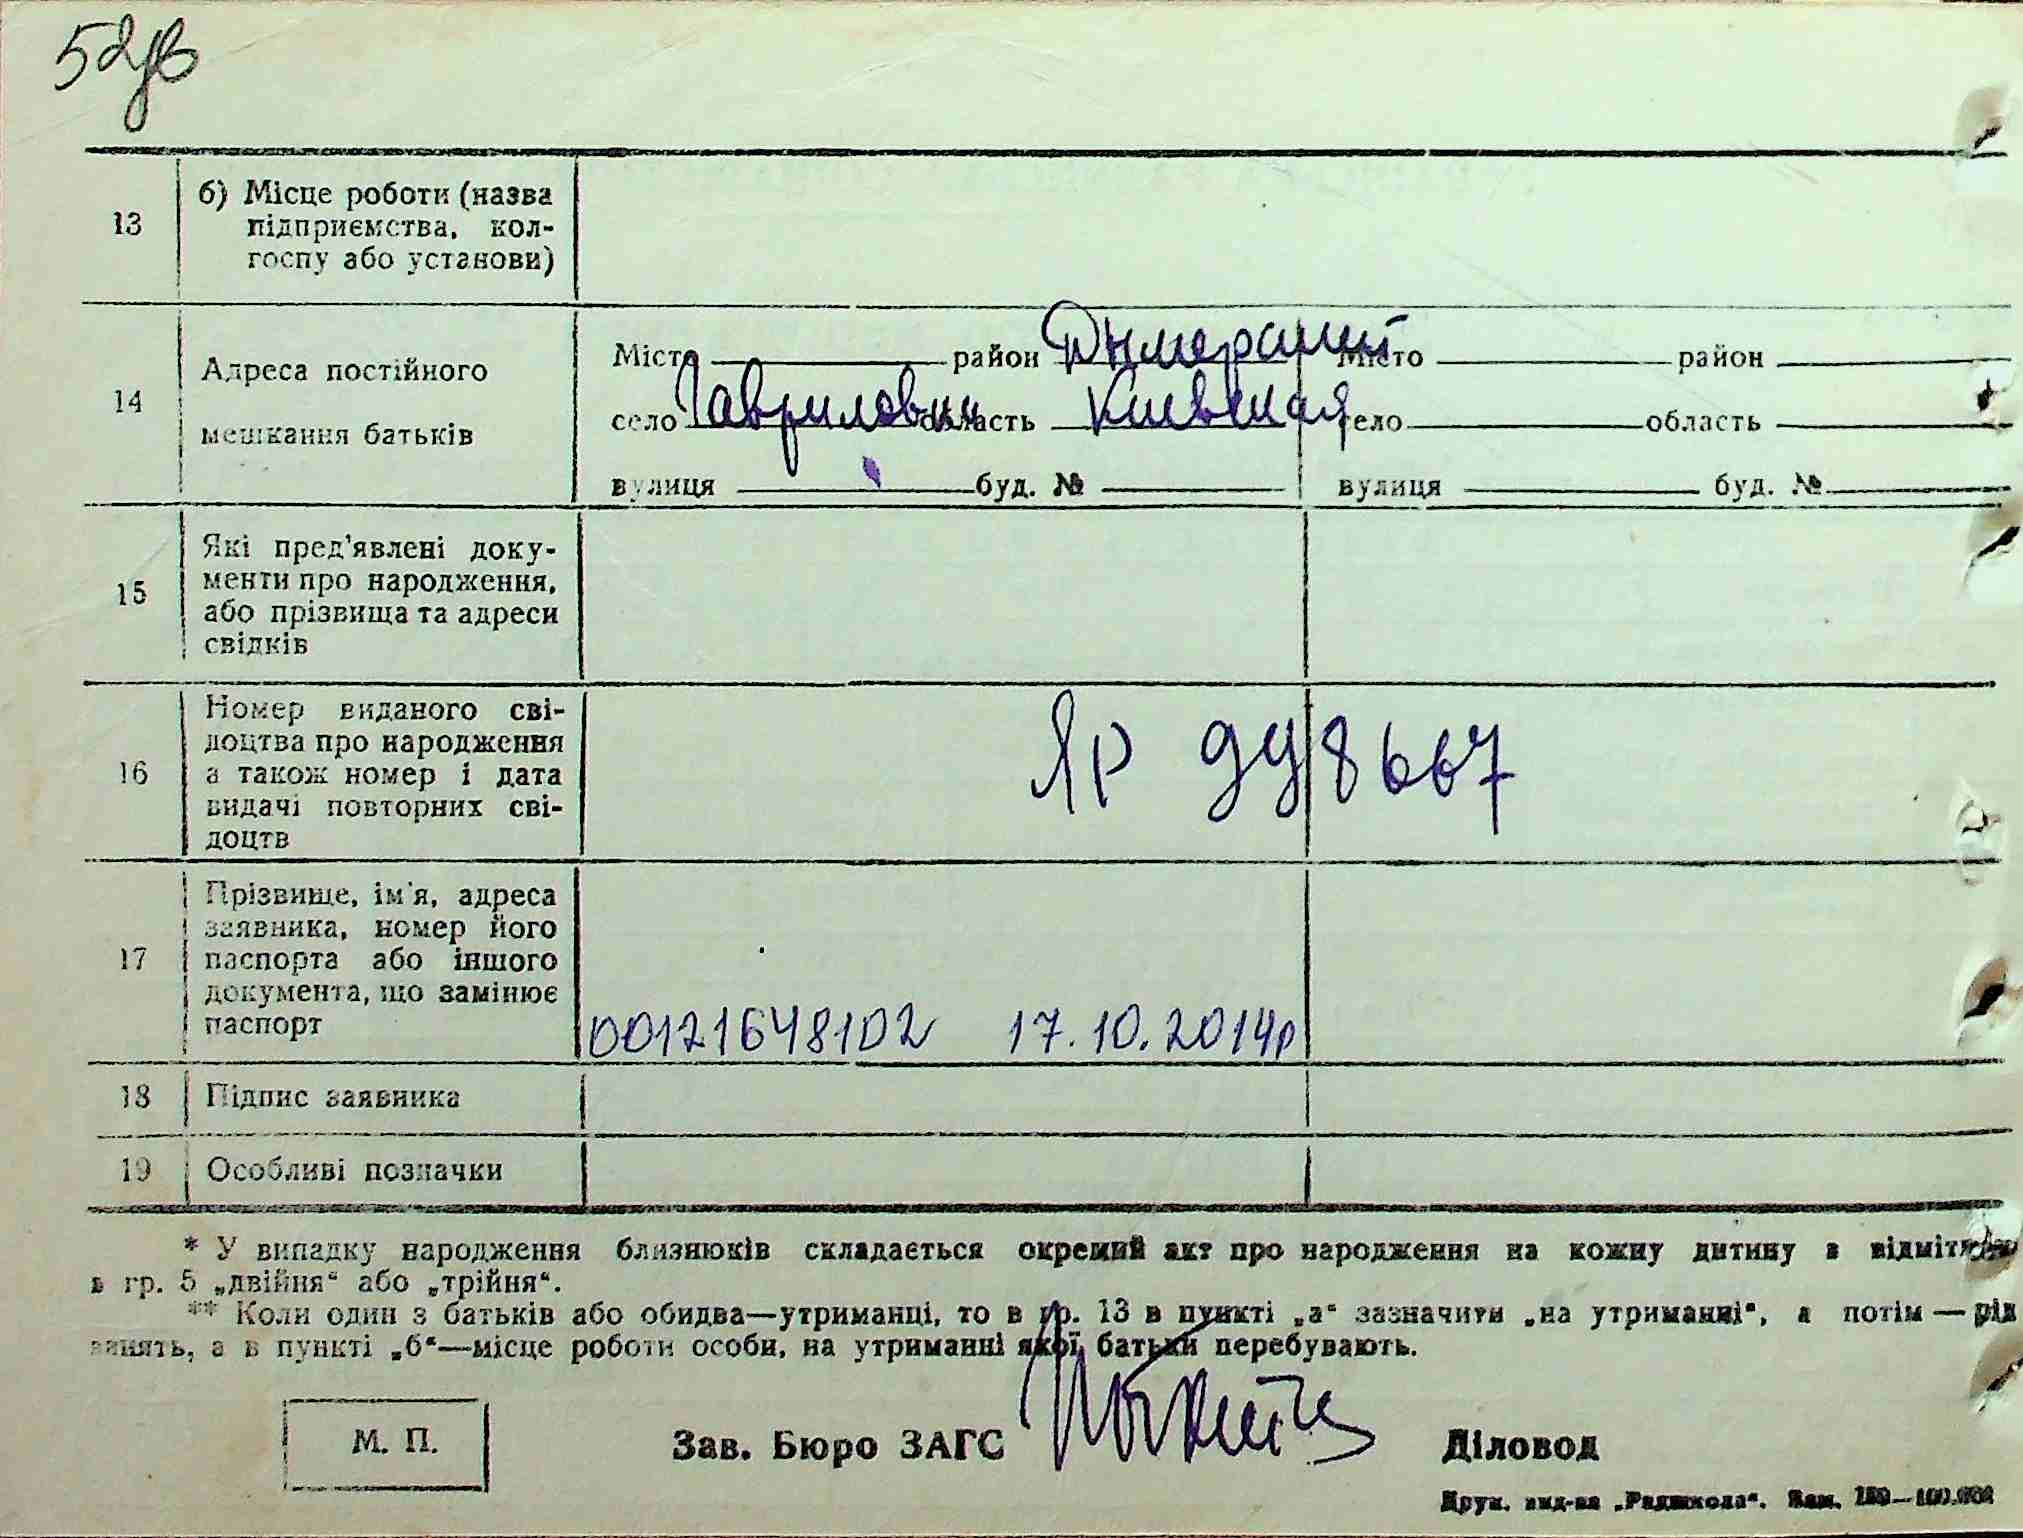 52
13 б) Місце роботи (назва
підприємства, кол-
госпу або установи)
14 Адреса постійного
мешкання батьків
Місто район Дымерский Місто район
село Гавриловки область Киевская село область
вулиця буд. № вулиця буд. №
15 Які пред'явлені доку-
менти про народження,
або прізвища та адреси
свідків
16 Номер виданого сві-
доцтва про народження
а також номер і дата
видачі повторних сві-
доцтв
ЯР 998667
17 Прізвище, ім'я, адреса
заявника, номер його
паспорта або іншого
документа, що замінює
паспорт
00121648102 17.10.2014р
18 Підпис заявника
19 Особливі позначки
* У випадку народження близнюків складається окремий акт про народження на кожну дитину з
в гр. 5 „двійня“ або „трійня“.
** Коли один з батьків або обидва—утриманці, то в гр. 13 в пункті „а“ зазначити „на утриманні“, а потім — рід
занять, а в пункті „б“—місце роботи особи, на утриманні якої батьки перебувають.
М. П. Зав. Бюро ЗАГС Діловод
Друк. вид-ва „Радшкола“. Зам.